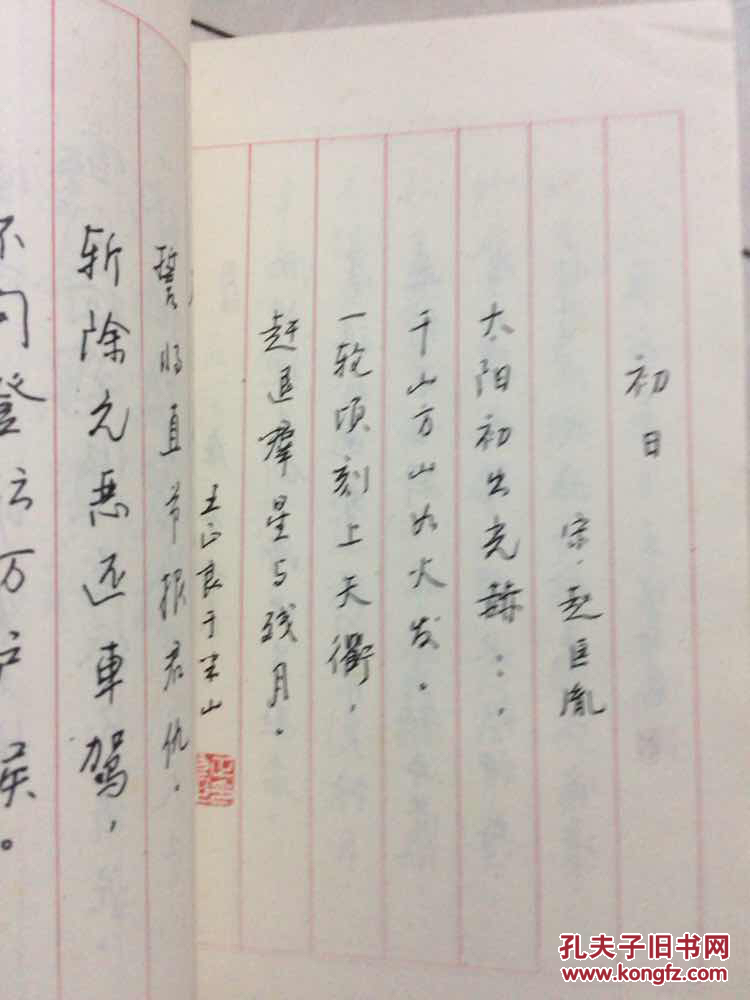 初日
宋·赵匡胤
太阳初出光赫：：.
千山万山如火发。
一轮頃刻上天衢，
赶退羣星与残月。
王正良于半山
誓将直节报君仇，
斩除元恶还車駕，
不问登坛万户侯。
孔夫子旧书网
www.kongfz.com